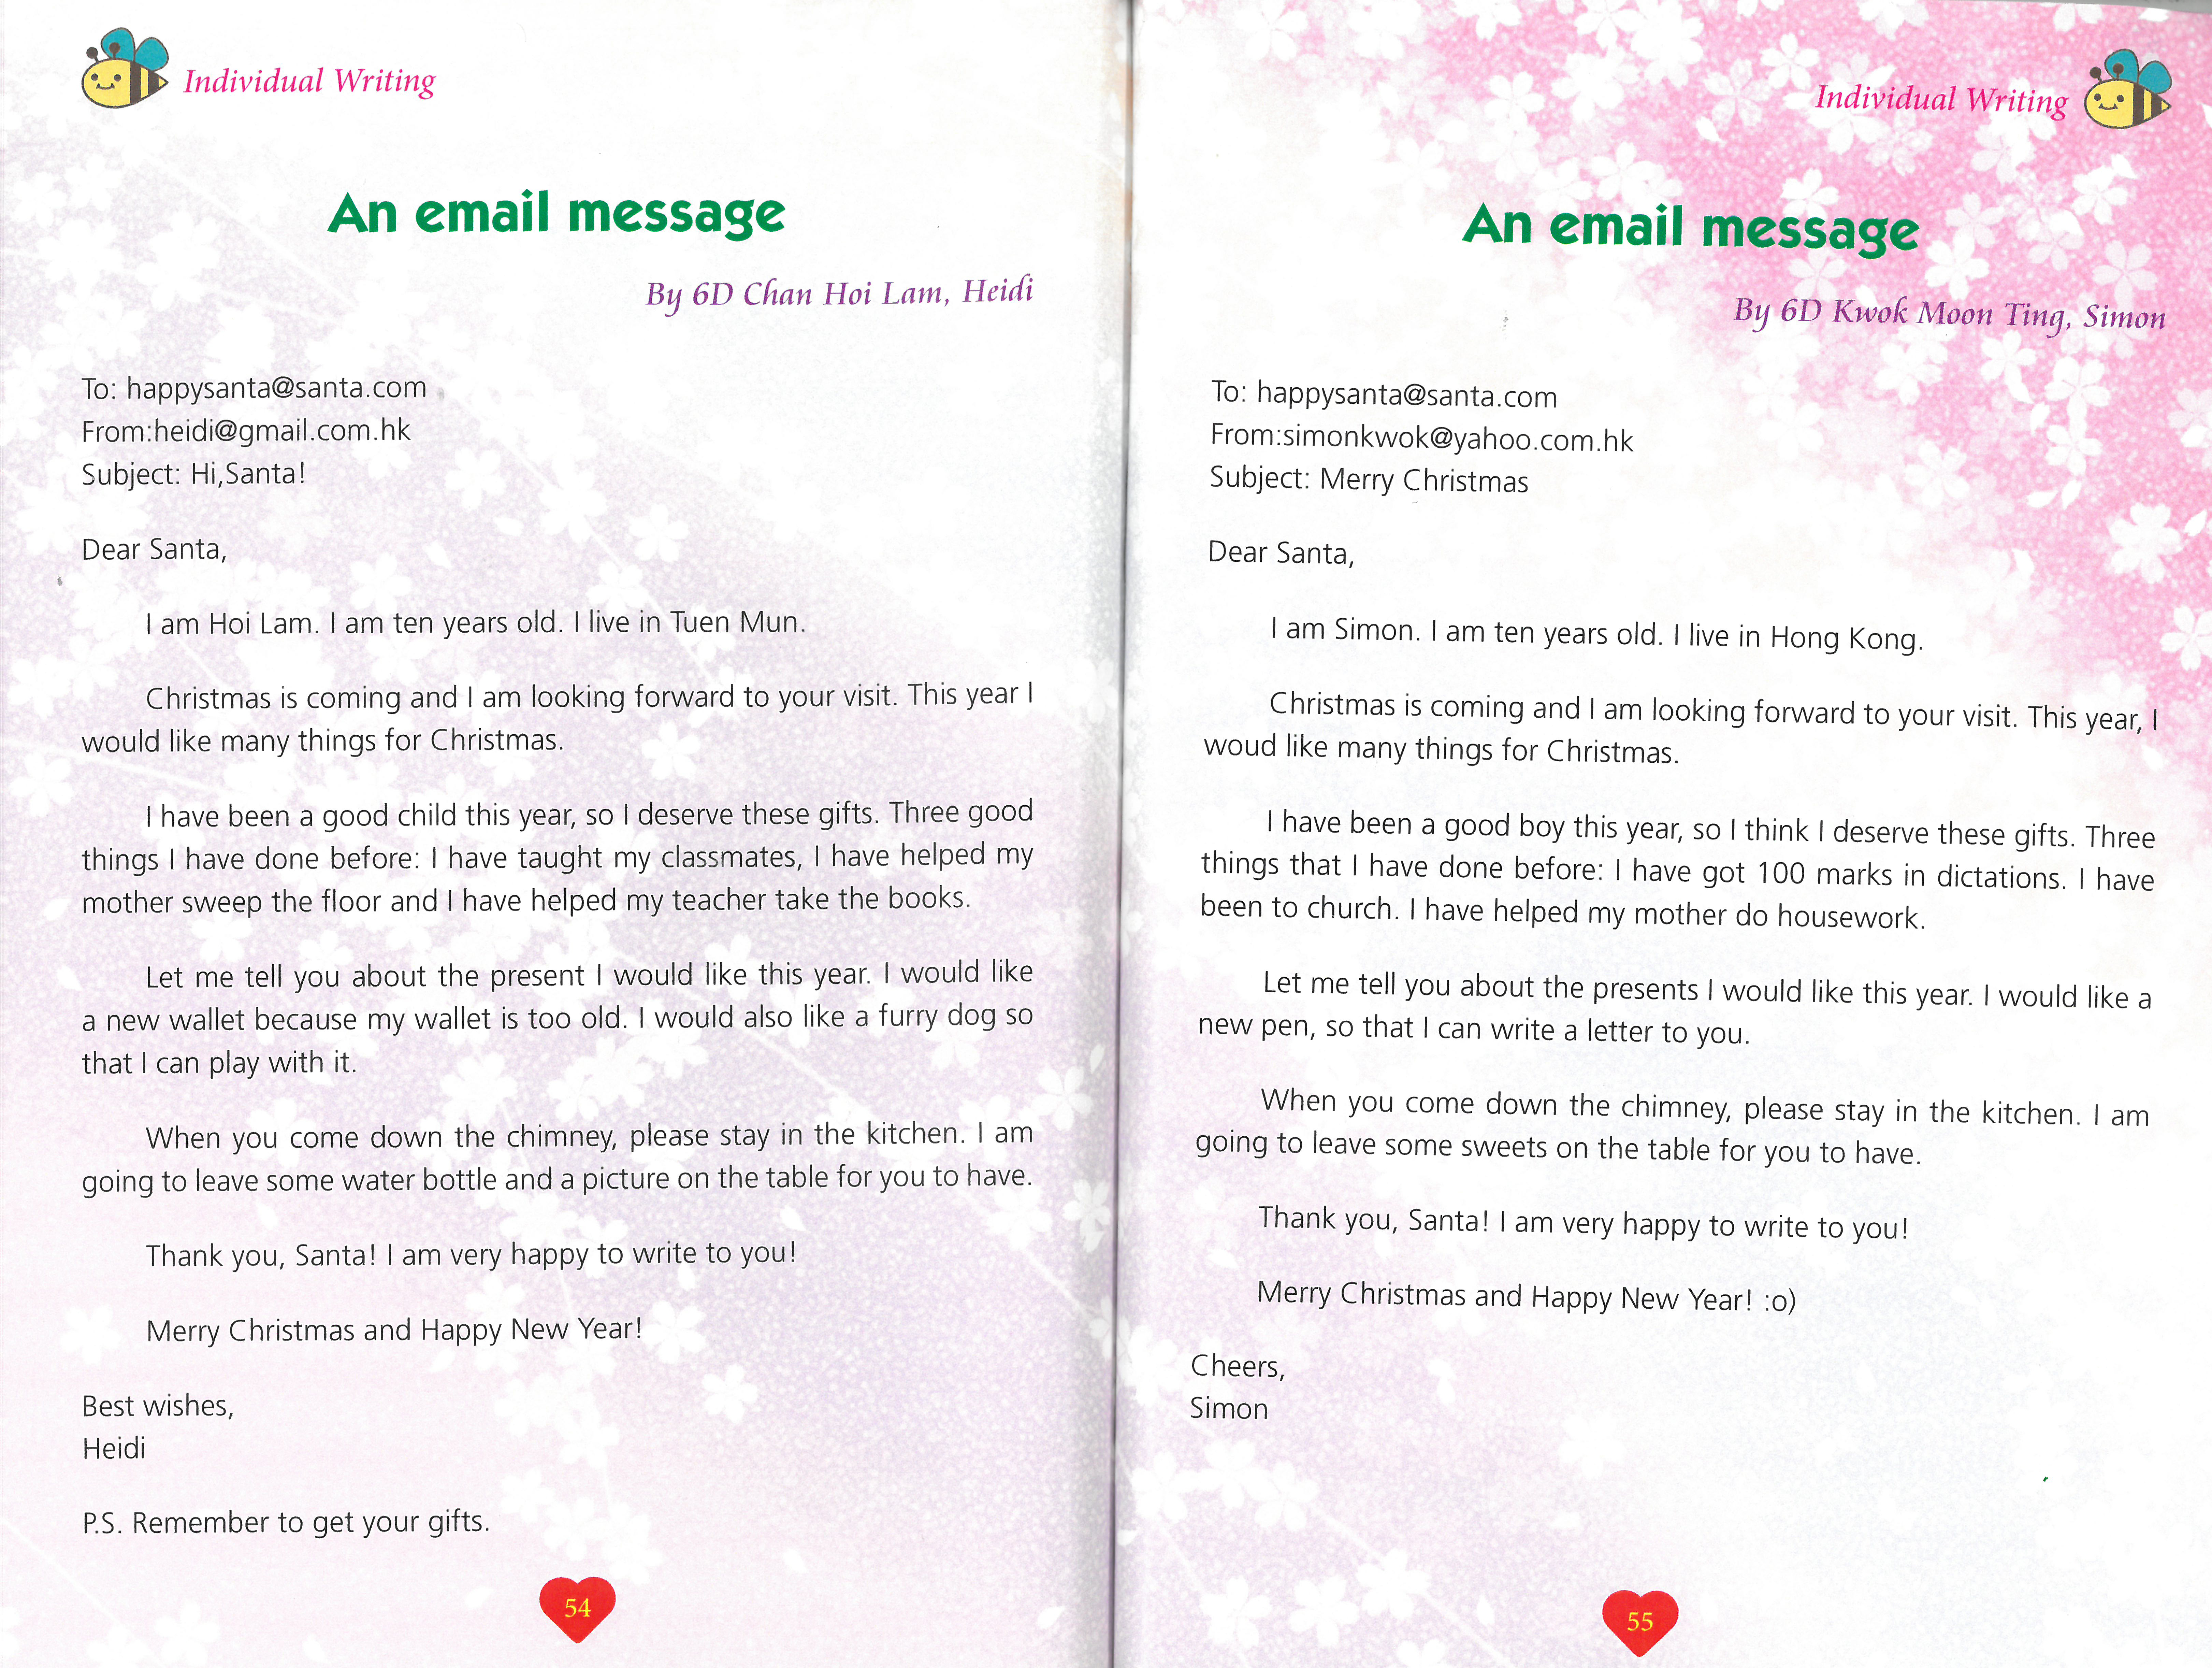 Individual Writing
An email message
By 6D Chan Hoi Lam, Heidi
To: happysanta@santa.com
From:heidi@gmail.com.hk
Subject: Hi,Santa!
Dear Santa,
I am Hoi Lam. I am ten years old. I live in Tuen Mun.
Christmas is coming and I am looking forward to your visit. This year I
would like many things for Christmas.
I have been a good child this year, so I deserve these gifts. Three good
things I have done before: I have taught my classmates, I have helped my
mother sweep the floor and I have helped my teacher take the books.
Let me tell you about the present I would like this year. I would like
a new wallet because my wallet is too old. I would also like a furry dog so
that I can play with it.
When you come down the chimney, please stay in the kitchen. I am
going to leave some water bottle and a picture on the table for you to have.
Thank you, Santa! I am very happy to write to you!
Merry Christmas and Happy New Year!
Best wishes,
Heidi
P.S. Remember to get your gifts.
54
Individual Writing
An email message
By 6D Kwok Moon Ting, Simon
To: happysanta@santa.com
From:simonkwok@yahoo.com.hk
Subject: Merry Christmas
Dear Santa,
I am Simon. I am ten years old. I live in Hong Kong.
Christmas is coming and I am looking forward to your visit. This year, I
woud like many things for Christmas.
I have been a good boy this year, so I think I deserve these gifts. Three
things that I have done before: I have got 100 marks in dictations. I have
been to church. I have helped my mother do housework.
Let me tell you about the presents I would like this year. I would like a
new pen, so that I can write a letter to you.
When you come down the chimney, please stay in the kitchen. I am
going to leave some sweets on the table for you to have.
Thank you, Santa! I am very happy to write to you!
Merry Christmas and Happy New Year! :o)
Cheers,
Simon
55